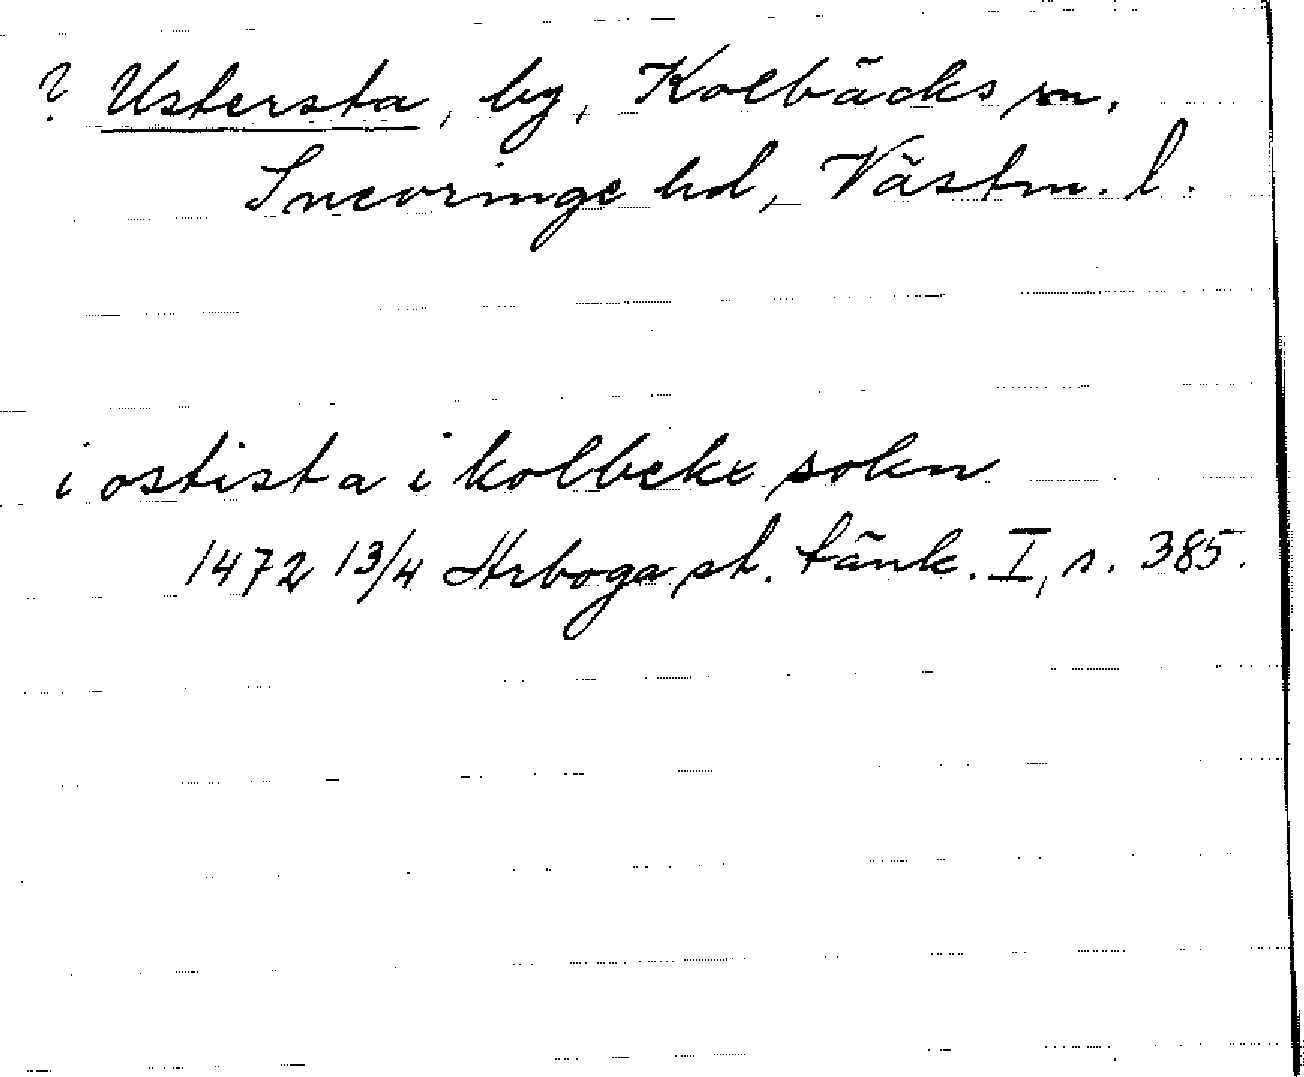 ? Ustersta, by, Kolbäcks sn,
Snevringe hd, Västm. l.
i ostista i kolbekx sokn
1472 13/4 Arboga st. tänk. I, s. 385.